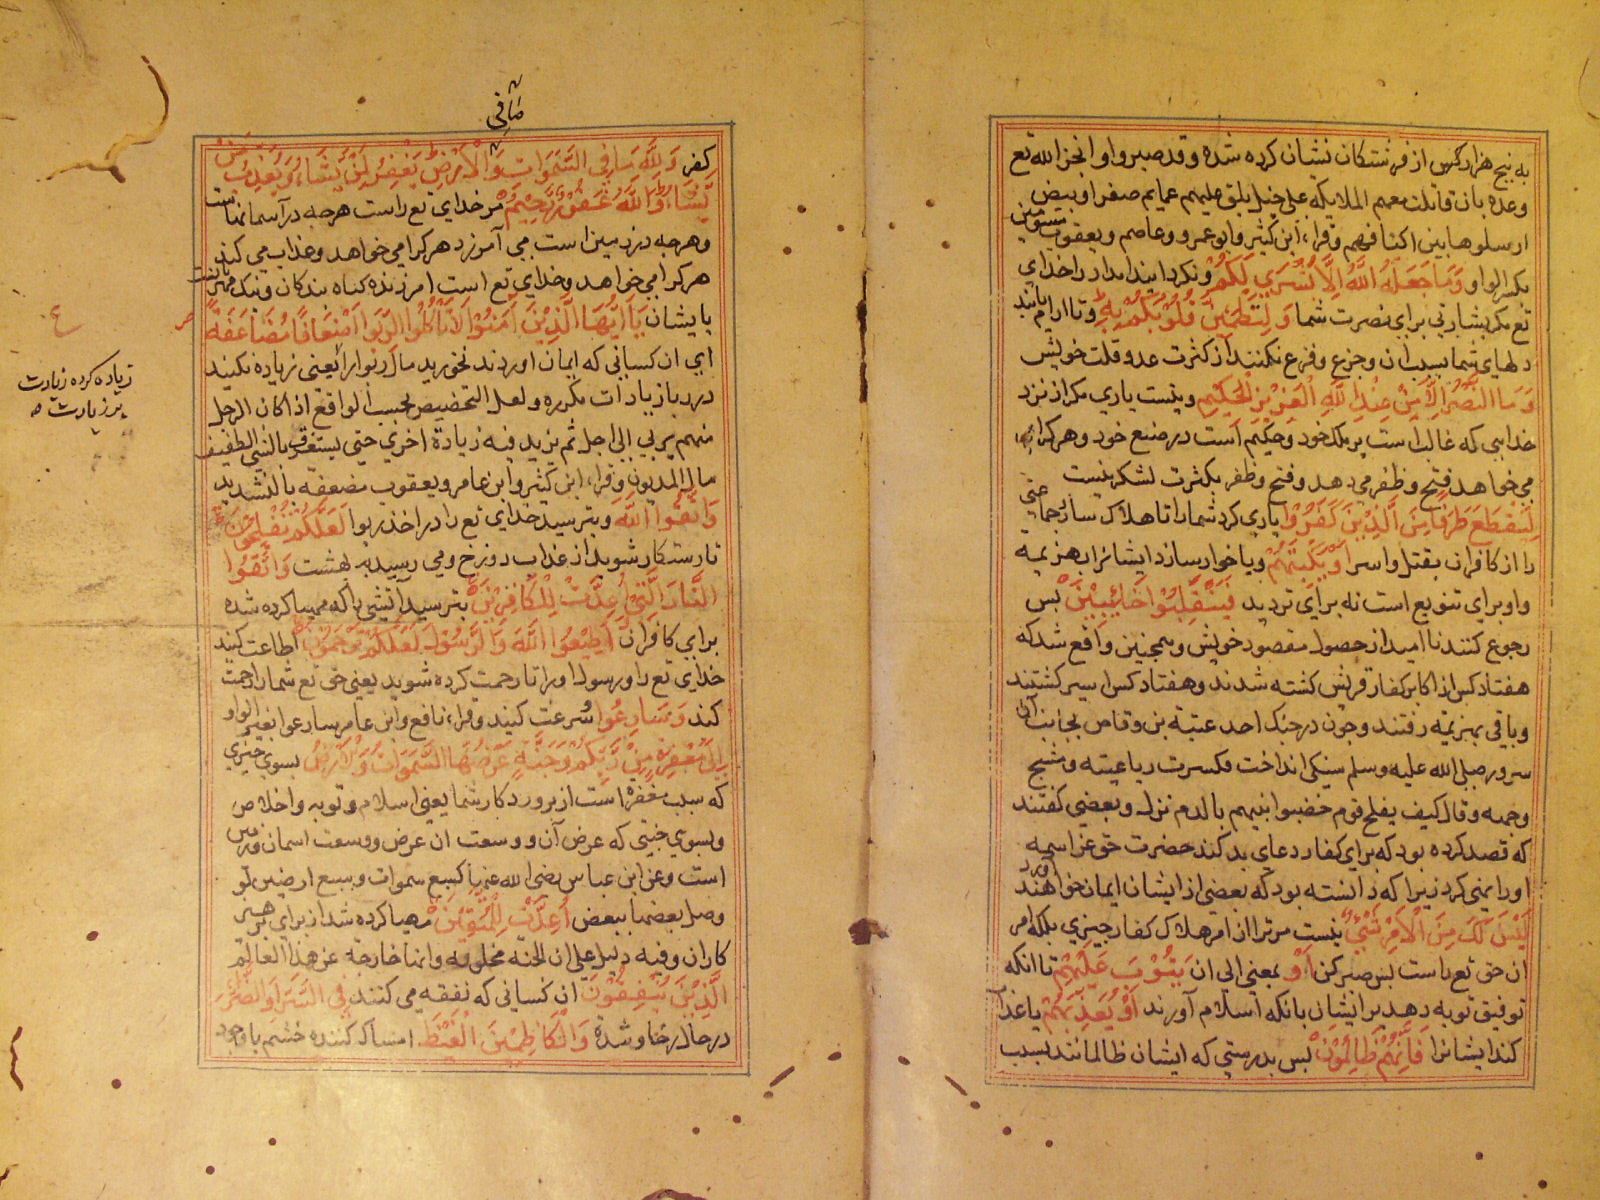 به پنج هزار کس از فرشتکان نشان کرده شده وقد صبروا و انجز الله تع
وعده بان قاتلت معهم الملایکه علی خیل بلق علیهم عمایم صفر او بیض
ارسلوها بین اکتافهم وقراء ابن کثیر وابو عمرو وعاصم ویعقوب مسومین
بکسر الواو وَمَا جَعَلَهُ اللَّهُ اِلَّا بُشْرَی لَکُمْ ونکردانید امداد را خدای
تع مکر بشارتی برای نصرت شما وَلِتَطْمَئِنَّ قُلُوبُکُمْ بِهِ وتا ارام یابند
دلهای شما بسبب ان وجزع وفزع نکنند از کثرت عدو وقلت خویش
وَمَا النَّصْرُ اِلَّا مِنْ عِنْدِ اللَّهِ الْعَزِیزِ الْحَکِیمِ ونیست یاری مکر از نزد
خدایی که غالب است بر ملک خود وحکیم است در صنع خود وهر کرا
می خواهد فتح وظفر می دهد وفتح وظفر بکثرت لشکر نیست
لِیَقْطَعَ طَرَفًا مِنَ الَّذِینَ کَفَرُوا یاری کرد شما را تا هلاک سازد جماعتی
را از کافران بقتل واسر اَوْ یَکْبِتَهُمْ ویا خوار سازد ایشانرا بهزیمه
واو برای تنویع است نه برای تردید فَیَنْقَلِبُوا خَائِبِینَ پس
رجوع کنند نا امید از حصول مقصود خویش وهمچنین واقع شد که
هفتاد کس از اکابر کفار قریش کشته شدند وهفتاد کس اسیر کشتند
وباقی بهزیمه رفتند وچون در جنک احد عتبة بن وقاص بجانب آن
سرور صلی الله علیه وسلم سنکی انداخت فکسرت رباعیته وشج
وجهه وقال کیف یفلح قوم خضبوا نبیهم بالدم نزل وبعضی کفتند
که قصد کرده بود که برای کفار دعای بد کند حضرت حق عز اسمه
اورا نهی کرد زیرا که دانسته بود که بعضی از ایشان ایمان خواهند آورد
لَیْسَ لَکَ مِنَ الْاَمْرِ شَیْءٌ نیست مر ترا از امر هلاک کفار چیزی بلکه امر
ان حق تع راست پس صبر کن اَوْ بمعنی الی ان یَتُوبَ عَلَیْهِمْ تا انکه
توفیق توبه دهد بر ایشان بانکه اسلام آورند اَوْ یُعَذِّبَهُمْ یا عذاب
کند ایشانرا فَاِنَّهُمْ ظَالِمُونَ پس بدرستی که ایشان ظالمانند بسبب
مافی
کفر وَلِلَّهِ مَا فِی السَّمَوَاتِ وَمَا فِی الْاَرْضِ یَغْفِرُ لِمَنْ یَشَاءُ وَیُعَذِّبُ مَنْ
یَشَاءُ وَاللَّهُ غَفُورٌ رَحِیمٌ مر خدای تع راست هرچه در آسمانهاست
وهرچه در زمین است می آمرزد هر کرا می خواهد وعذاب می کند
هر کرا می خواهد وخدای تع است امرزنده کناه بندکان ونیک مهربانست
بایشان یَا اَیُّهَا الَّذِینَ آمَنُوا لَا تَأْکُلُوا الرِّبَوا اَضْعَافًا مُضَاعَفَةً
ای ان کسانی که ایمان اوردند نخورید مال ربوا را یعنی زیاده نکیند
در ربا زیادات مکرره ولعل التخصیص بحسب الواقع اذ کان الرجل
منهم یربی الی اجل ثم یزید فیه زیادة اخری حتی یستغرق بالشی الطفیف
مال المدیون وقراء ابن کثیر وابن عامر ویعقوب مضعفه بالتشدید
وَاتَّقُوا اللَّهَ وبترسید خدای تع را در اخذ ربوا لَعَلَّکُمْ تُفْلِحُونَ
تا رستکار شوید از عذاب دوزخ ومی رسید به بهشت وَاتَّقُوا
النَّارَ الَّتِی اُعِدَّتْ لِلْکَافِرِینَ بترسید اتشی را که مهیا کرده شده
برای کافران اَطِیعُوا اللَّهَ وَالرَّسُولَ لَعَلَّکُمْ تُرْحَمُونَ اطاعت کنید
خدای تع را ورسول اورا تا رحمت کرده شوید یعنی حق تع شمارا رحمت
کند وَسَارِعُوا سُرعت کنید وقراء نافع وابن عامر سارعوا بغیر الواو
اِلَی مَغْفِرَةٍ مِنْ رَبِّکُمْ وَجَنَّةٍ عَرْضُهَا السَّمَوَاتُ وَالْاَرْضُ بسوی چیزی
که سبب مغفرة است از پروردکار شما یعنی اسلام وتوبه واخلاص
وبسوی جنتی که عرض آن ووسعت ان عرض ووسعت اسمان وزمین
است وعن ابن عباس رضی الله عنهما کسبع سموات وسبع ارضین لو
وصل بعضها ببعض اُعِدَّتْ لِلْمُتَّقِینَ مهیا کرده شد از برای پرهیز
کاران وفیه دلیل علی ان الجنة مخلوقه وانها خارجة عن هذا العالم
الَّذِینَ یُنْفِقُونَ آن کسانی که نفقه می کنند فِی السَّرَّاءِ وَالضَّرَّاءِ
در حال رخا وشدة وَالْکَاظِمِینَ الْغَیْظَ امساک کننده خشم با وجود
زیاده کرده زیادت
بر زیادت